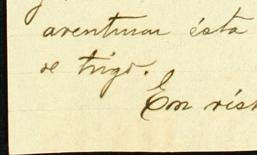 aventurar ésta
de trigo.
En vist